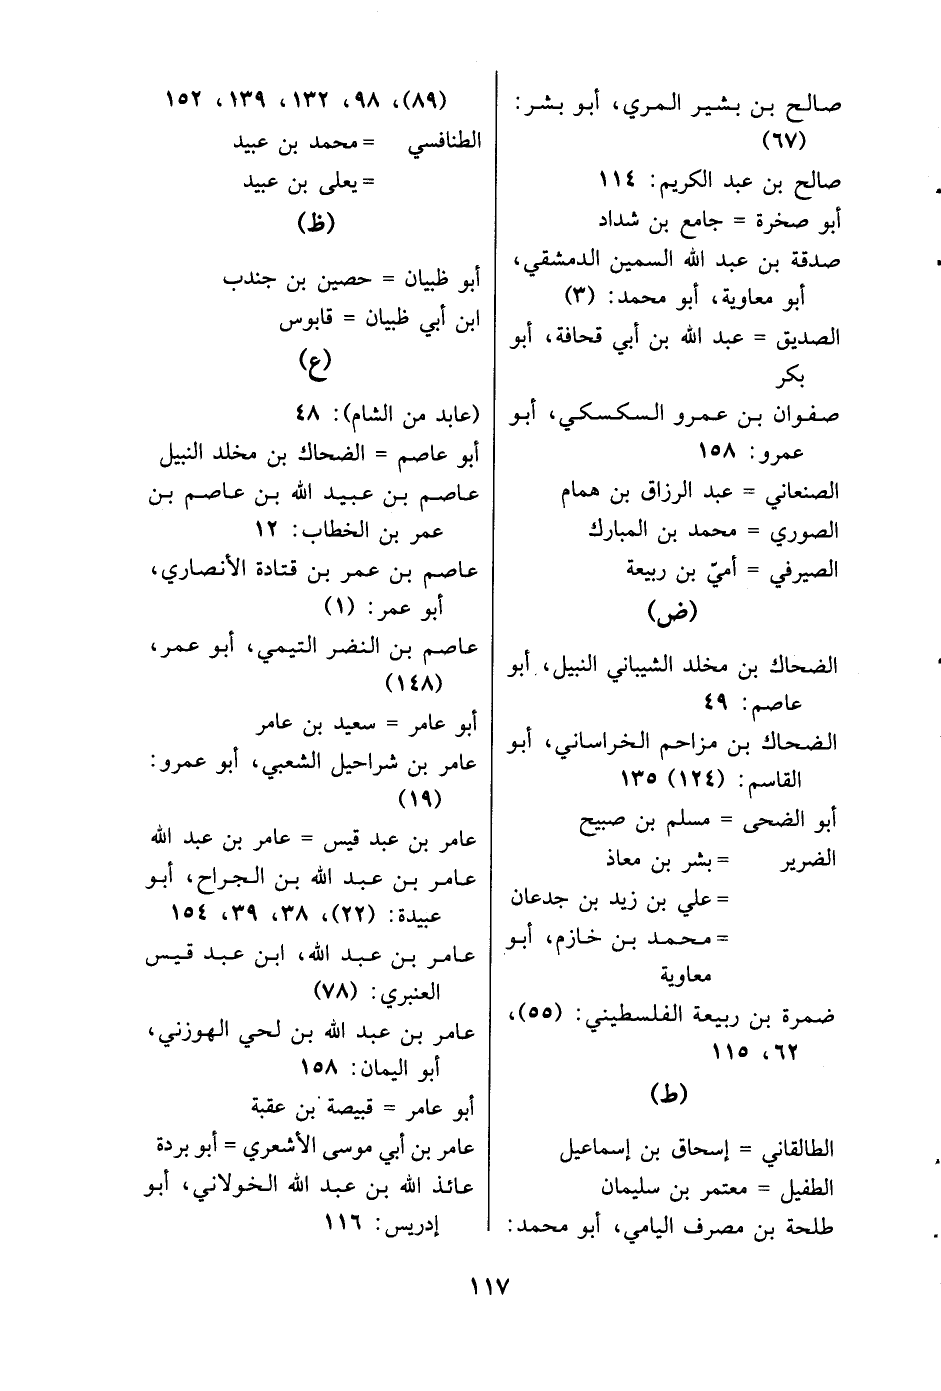 صالح بن بشير المري، أبو بشر:
(٦٧)
صالح بن عبد الكريم: ١١٤
أبو صخرة = جامع بن شداد
صدقة بن عبد الله السمين الدمشقي،
أبو معاوية، أبو محمد: (٣)
الصديق = عبد الله بن أبي قحافة، أبو
بكر
صفوان بن عمرو السكسكي، أبو
عمرو: ١٥٨
الصنعاني = عبد الرزاق بن همام
الصوري = محمد بن المبارك
الصيرفي = أميّ بن ربيعة
(ض)
الضحاك بن مخلد الشيباني النبيل، أبو
عاصم: ٤٩
الضحاك بن مزاحم الخراساني، أبو
القاسم: (١٢٤) ١٣٥
أبو الضحى = مسلم بن صبيح
الضرير = بشر بن معاذ
= علي بن زيد بن جدعان
= محمد بن خازم، أبو
معاوية
ضمرة بن ربيعة الفلسطيني: (٥٥)،
٦٢، ١١٥
(ط)
الطالقاني = إسحاق بن إسماعيل
الطفيل = معتمر بن سليمان
طلحة بن مصرف اليامي، أبو محمد:
(٨٩)، ٩٨، ١٣٢، ١٣٩، ١٥٢
الطنافسي = محمد بن عبيد
= يعلى بن عبيد
(ظ)
أبو ظبيان = حصين بن جندب
ابن أبي ظبيان = قابوس
(ع)
(عابد من الشام): ٤٨
أبو عاصم = الضحاك بن مخلد النبيل
عاصم بن عبيد الله بن عاصم بن
عمر بن الخطاب: ١٢
عاصم بن عمر بن قتادة الأنصاري،
أبو عمر: (١)
عاصم بن النضر التيمي، أبو عمر،
(١٤٨)
أبو عامر = سعيد بن عامر
عامر بن شراحيل الشعبي، أبو عمرو:
(١٩)
عامر بن عبد قيس = عامر بن عبد الله
عامر بن عبد الله بن الجراح، أبو
عبيدة: (٢٢)، ٣٨، ٣٩، ١٥٤
عامر بن عبد الله، ابن عبد قيس
العنبري: (٧٨)
عامر بن عبد الله بن لحي الهوزني،
أبو اليمان: ١٥٨
أبو عامر = قبيصة بن عقبة
عامر بن أبي موسى الأشعري = أبو بردة
عائذ الله بن عبد الله الخولاني، أبو
إدريس: ١١٦
١١٧